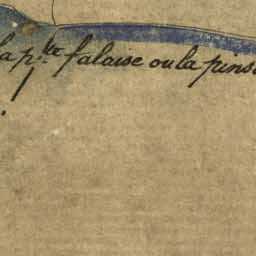 la p.te falaise ou la pins